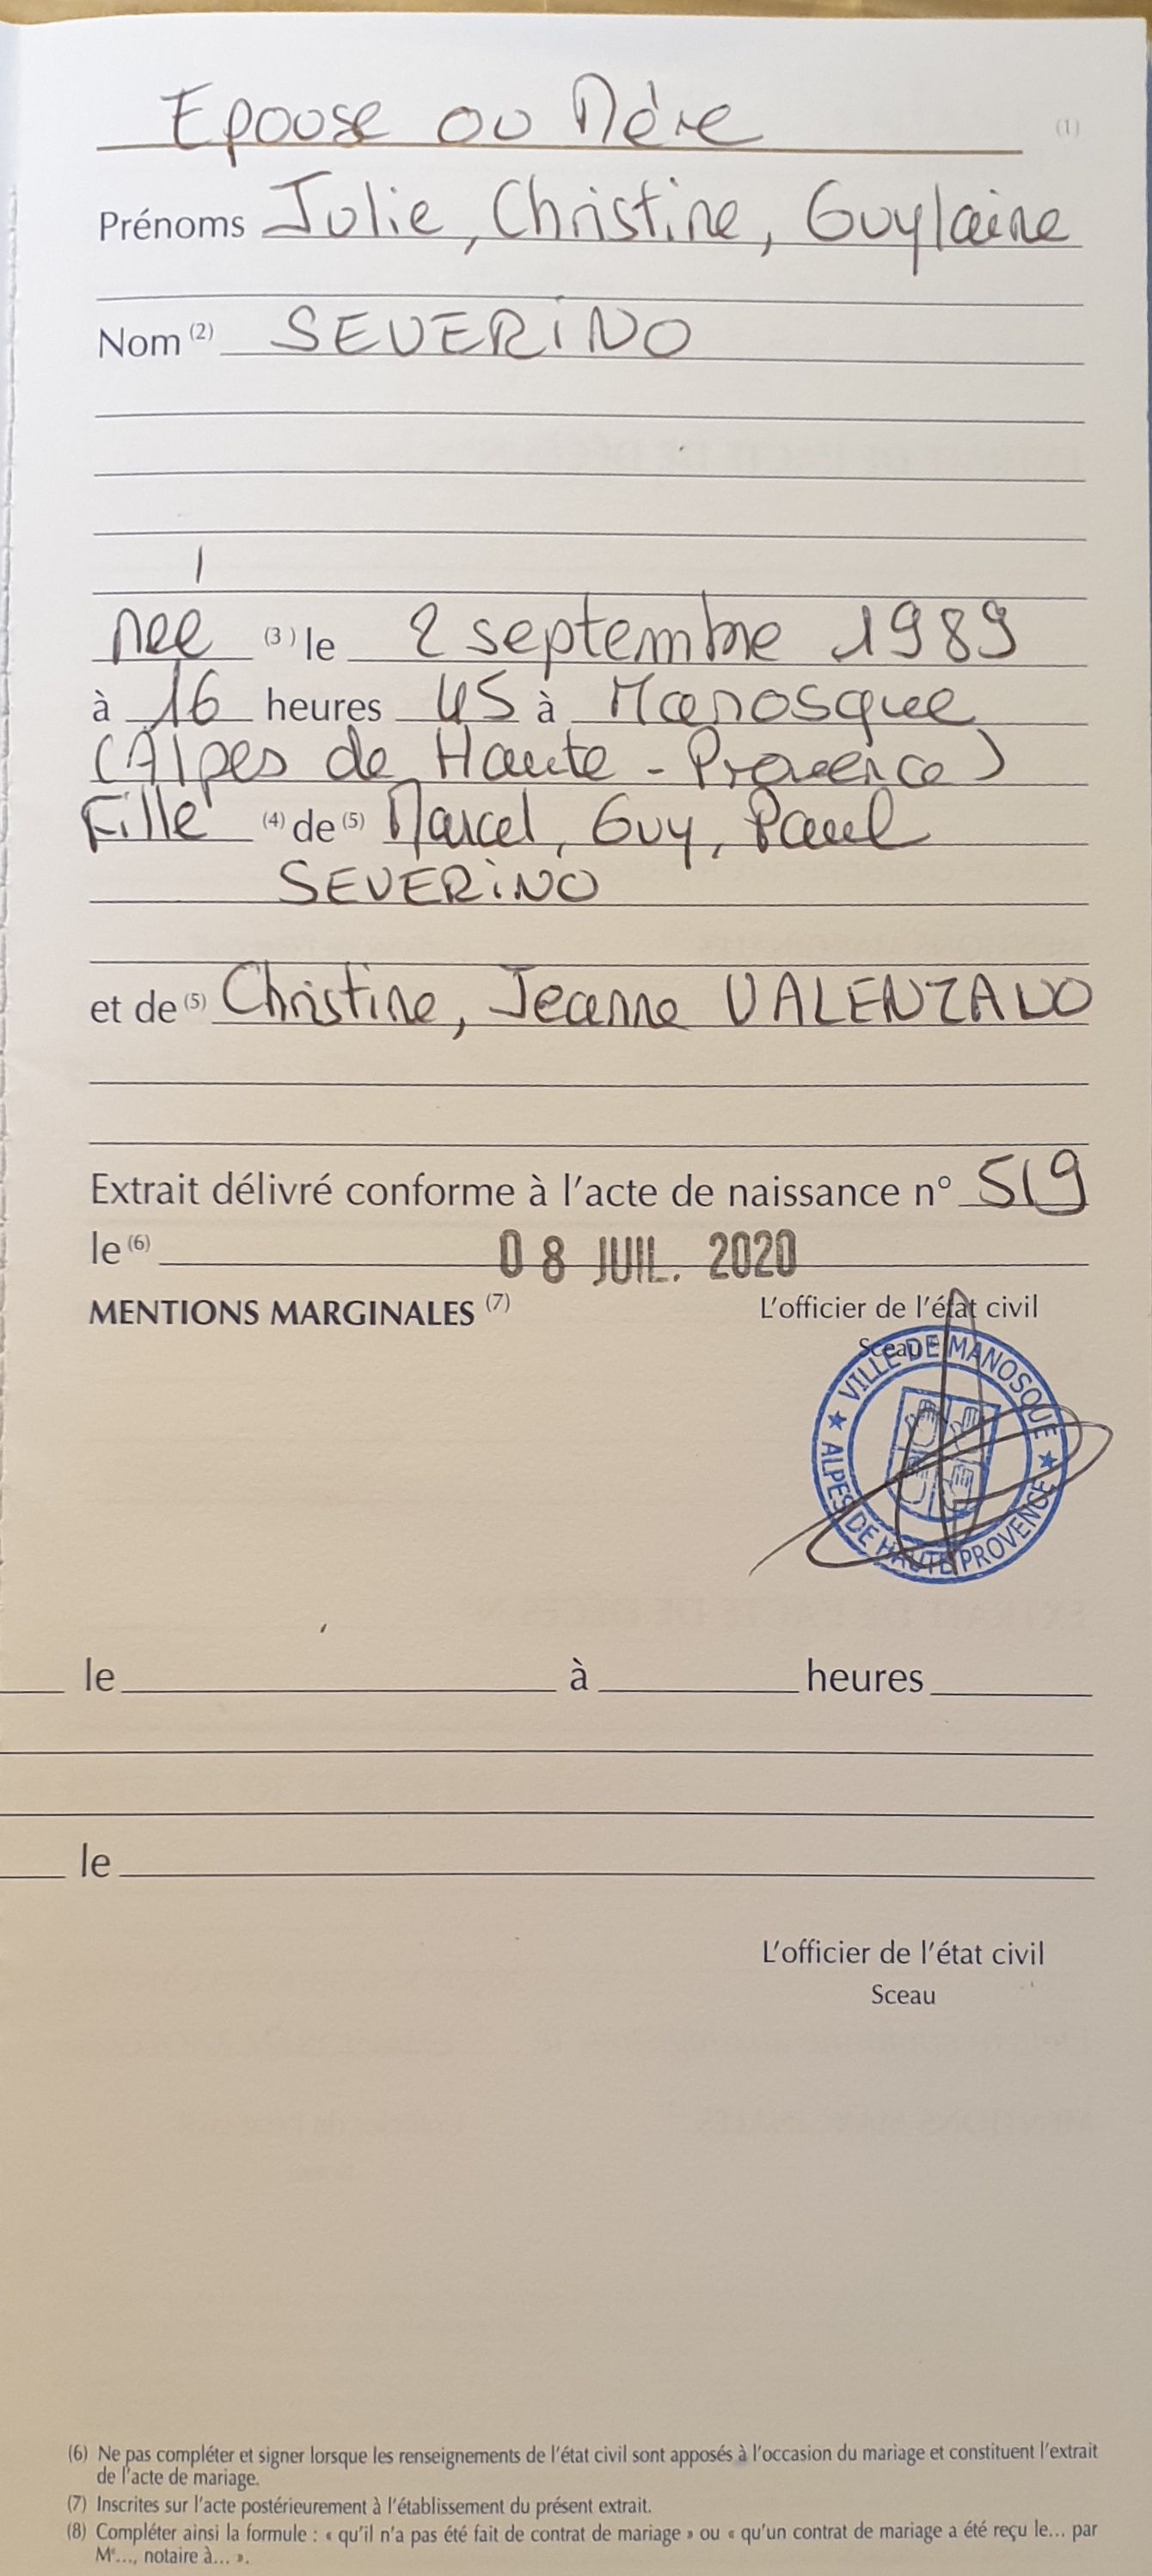 Epouse ou Mère (1)
Prénoms Julie, Christine, Guylaine
Nom (2) SEVERINO
née (3) le 2 septembre 1989
à 16 heures 45 à Manosque
(Alpes de Haute-Provence)
Fille (4) de (5) Marcel, Guy, Paul
SEVERINO
et de (5) Christine, Jeanne VALENZANO
Extrait délivré conforme à l'acte de naissance n° 519
le (6) 08 JUIL. 2020
MENTIONS MARGINALES (7) L'officier de l'état civil
Sceau
★ VILLE DE MANOSQUE ★
ALPES DE HAUTE PROVENCE
le à heures
le
L'officier de l'état civil
Sceau
(6) Ne pas compléter et signer lorsque les renseignements de l'état civil sont apposés à l'occasion du mariage et constituent l'extrait
de l'acte de mariage.
(7) Inscrites sur l'acte postérieurement à l'établissement du présent extrait.
(8) Compléter ainsi la formule : « qu'il n'a pas été fait de contrat de mariage » ou « qu'un contrat de mariage a été reçu le... par
Me..., notaire à... ».